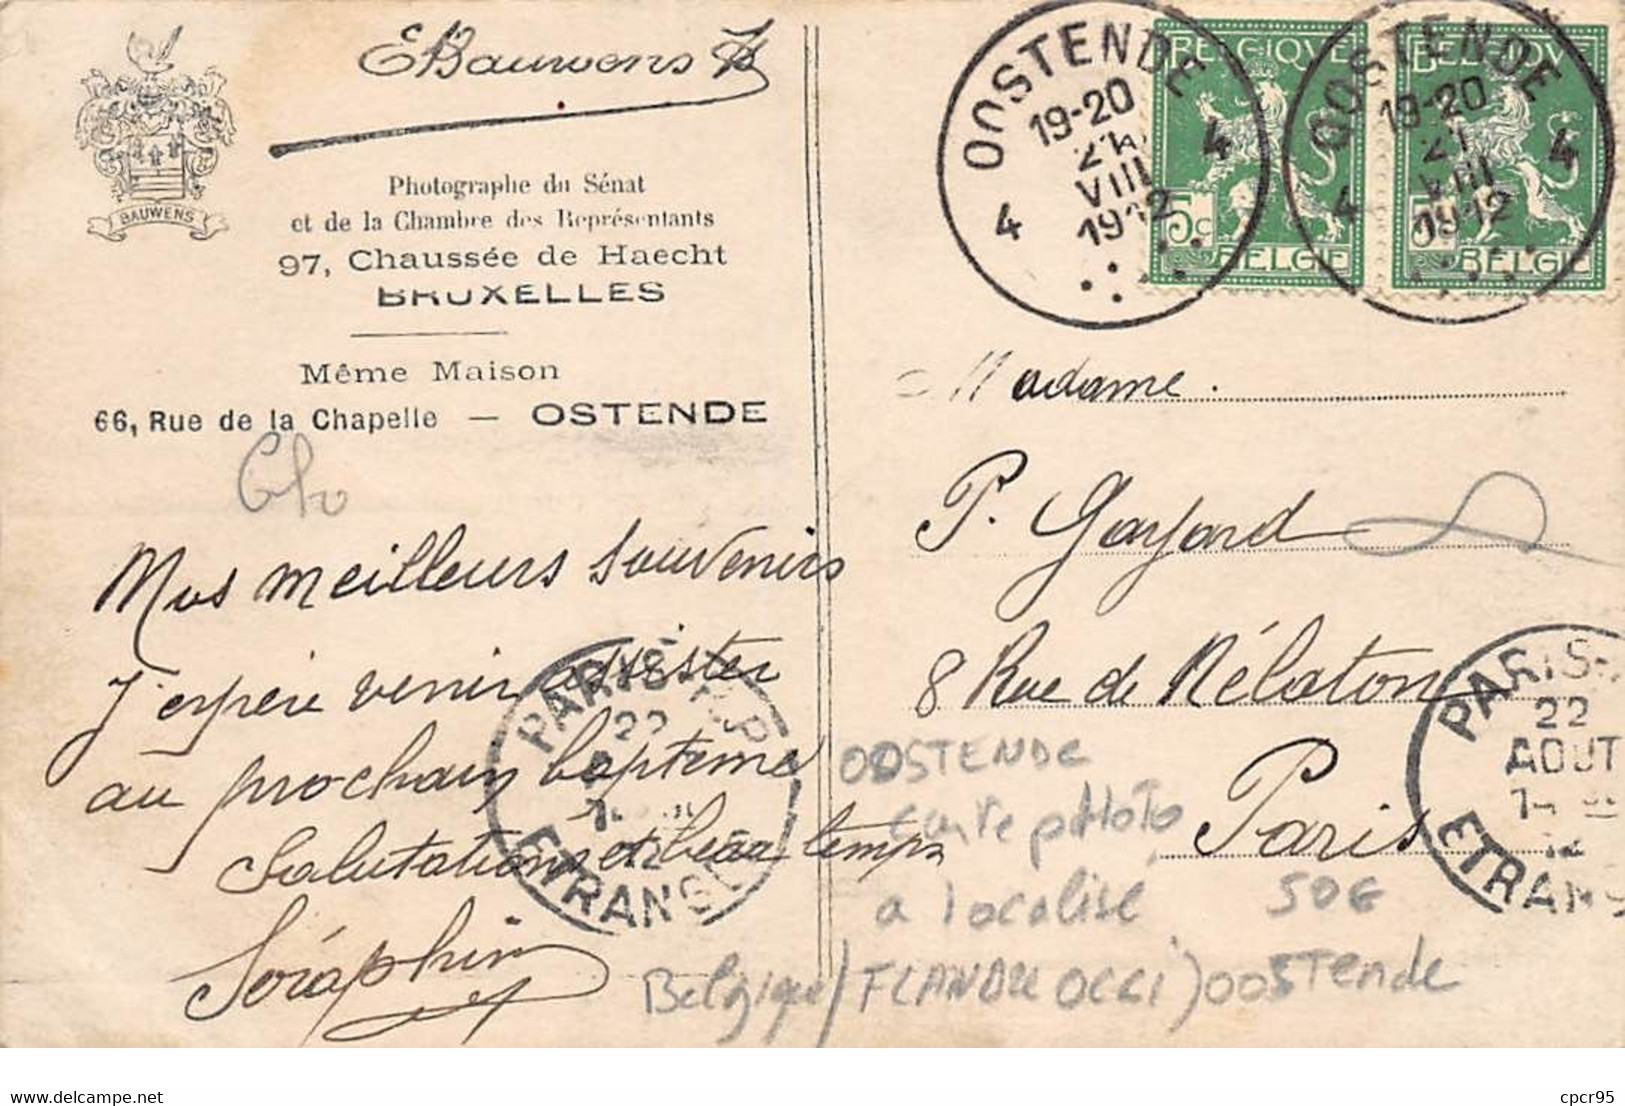 EBauwens
BAUWENS
Photographe du Sénat
et de la Chambre des Représentants
97, Chaussée de Haecht
BRUXELLES
Même Maison
66, Rue de la Chapelle — OSTENDE
Mes meilleurs souvenirs
J'espère venir assister
au prochain baptême
Salutations et beau temps
Séraphin
PARIS
22
ETRANGER
OOSTENDE
19-20
21
VIII
1912
4 4
BELGIQUE
5c
BELGIE
OOSTENDE
19-20
21
VIII
1912
4 4
BELGIQUE
BELGIE
Madame
P. Gayfard
8 Rue de Nélaton
Paris
PARIS
22
AOUT
12
ETRANG
OOSTENDE
carte photo
a localisé
50€
Belgique / FLANDRE OCCI ) OOSTende
cpcr95